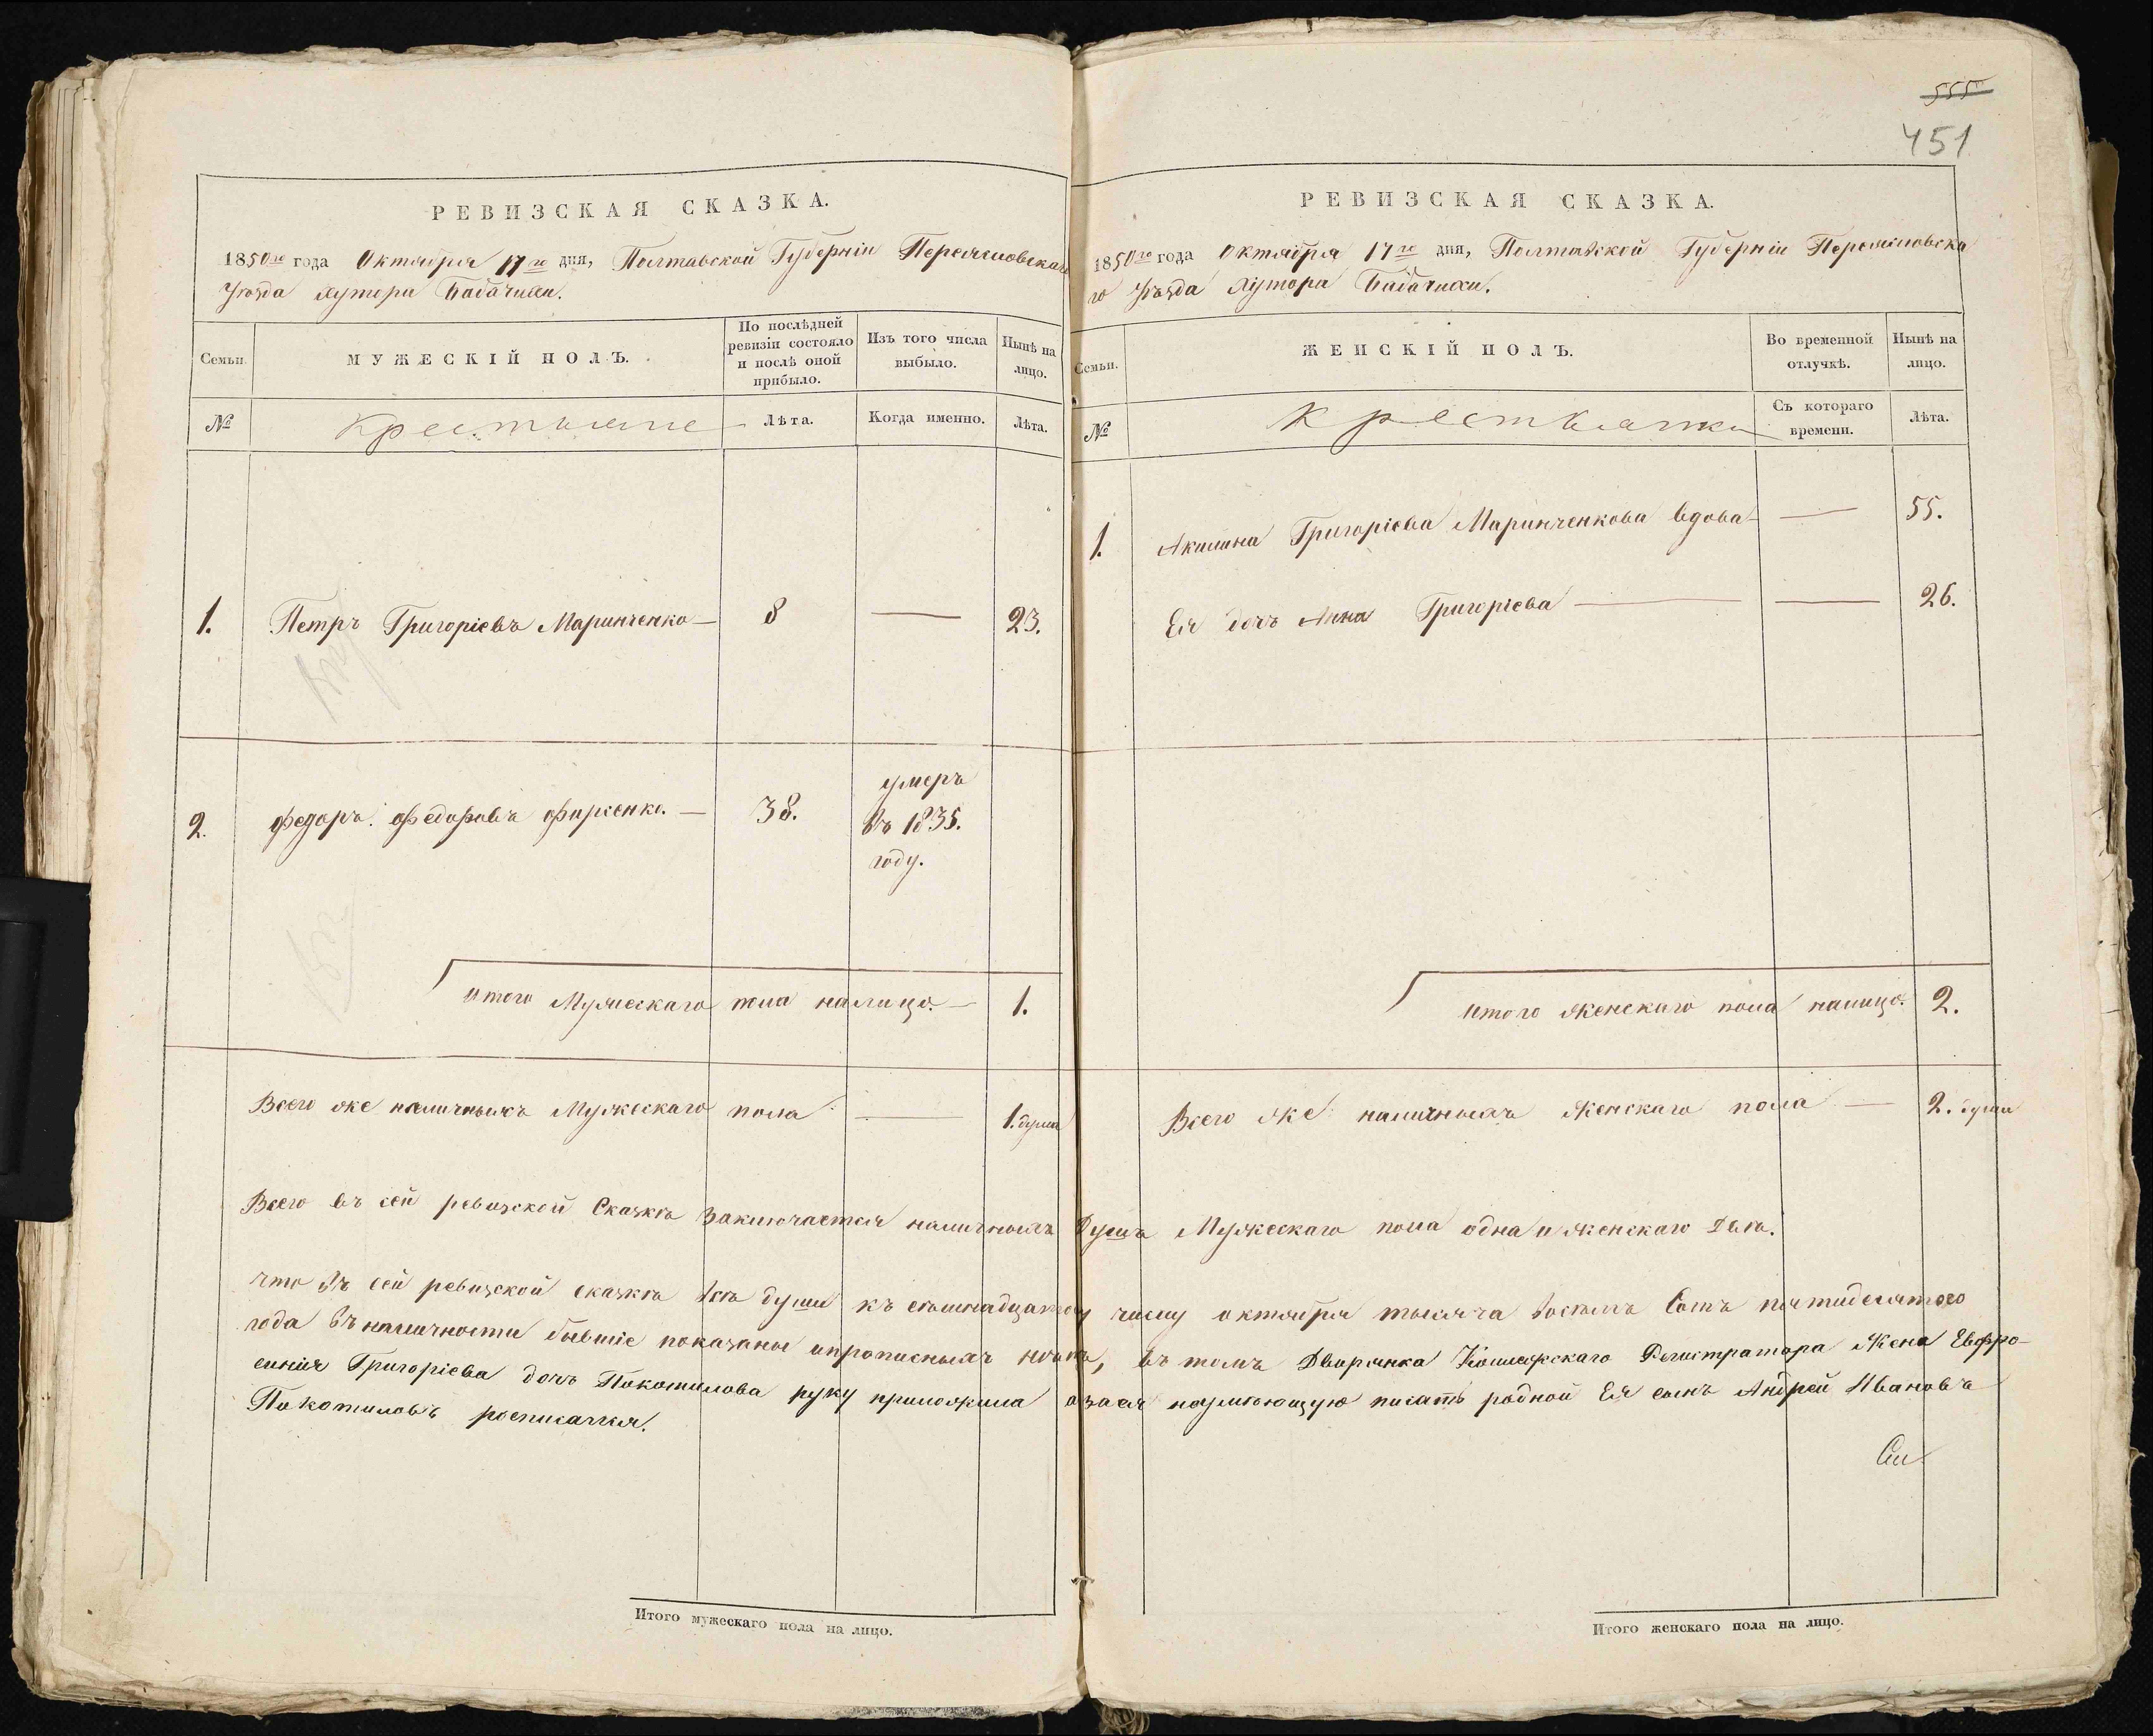 555
451
РЕВИЗСКАЯ СКАЗКА.
1850го года Октября 17го дня, Полтавской Губерніи Переяславскаго
Уѣзда Хутора Бабачихи.
Семьи.
МУЖЕСКІЙ ПОЛЪ.
По послѣдней ревизіи состояло и послѣ оной прибыло.
Изъ того числа выбыло.
Нынѣ на лицо.
№
Крестьяне
Лѣта.
Когда именно.
Лѣта.
1. Петръ Григоріевъ Маринченко — 8 — 23.
2. Федоръ Федоровъ Фирсенко. — 38.
умеръ
въ 1835.
году.
Итого Мужескаго пола налицо. — 1.
Всего же наличныхъ Мужескаго пола — 1. душа
РЕВИЗСКАЯ СКАЗКА.
1850го года Октября 17го дня, Полтавской Губерніи Переяславска
го Уѣзда Хутора Бабачихи.
Семьи.
ЖЕНСКІЙ ПОЛЪ.
Во временной отлучкѣ.
Нынѣ на лицо.
№
Крестьянки
Съ котораго времени.
Лѣта.
1. Акилина Григоріева Маринченкова вдова — — 55.
Ея дочь Анна Григоріева — — 26.
Итого Женскаго пола налицо. 2.
Всего же наличныхъ Женскаго пола — 2. души
Всего въ сей ревизской Сказкѣ заключается наличныхъ Душъ Мужескаго пола одна и женскаго двѣ.
что въ сей ревизской сказкѣ всѣ души къ семнадцатому числу октября тысяча восемь Сотъ пятидесятого
года въ наличности бывшіе показаные и прописныхъ нѣтъ, въ томъ Дворянка Колежскаго Регистратора Жена Евфро-
синія Григоріева дочь Покотилова руку приложила а за ея неумѣющую писать родной Ея сынъ Андрей Ивановъ
Покотиловъ росписался.
Итого мужескаго пола на лицо.
Итого женскаго пола на лицо.